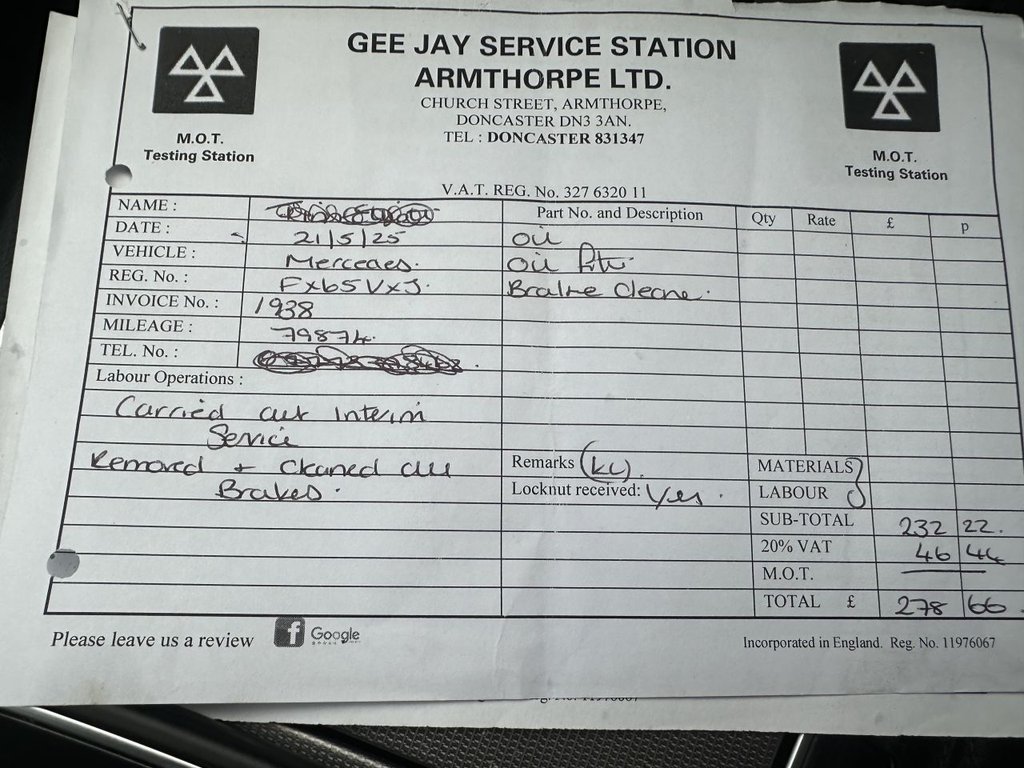 GEE JAY SERVICE STATION
ARMTHORPE LTD.
CHURCH STREET, ARMTHORPE,
DONCASTER DN3 3AN.
TEL : DONCASTER 831347
M.O.T.
Testing Station
M.O.T.
Testing Station
V.A.T. REG. No. 327 6320 11
NAME :
Part No. and Description Qty Rate £ p
DATE : 21/5/25 Oil
VEHICLE : Mercedes. Oil filter
REG. No. : FX65VXJ. Brake Cleane.
INVOICE No. : 1938
MILEAGE : 79874.
TEL. No. :
Labour Operations :
Carried out Interim
Service
Removed + cleaned all
Brakes.
Remarks
Locknut received: Yes.
MATERIALS
LABOUR
SUB-TOTAL 232 22.
20% VAT 46 44
M.O.T.
TOTAL £ 278 66.
Please leave us a review f Google
Incorporated in England. Reg. No. 11976067